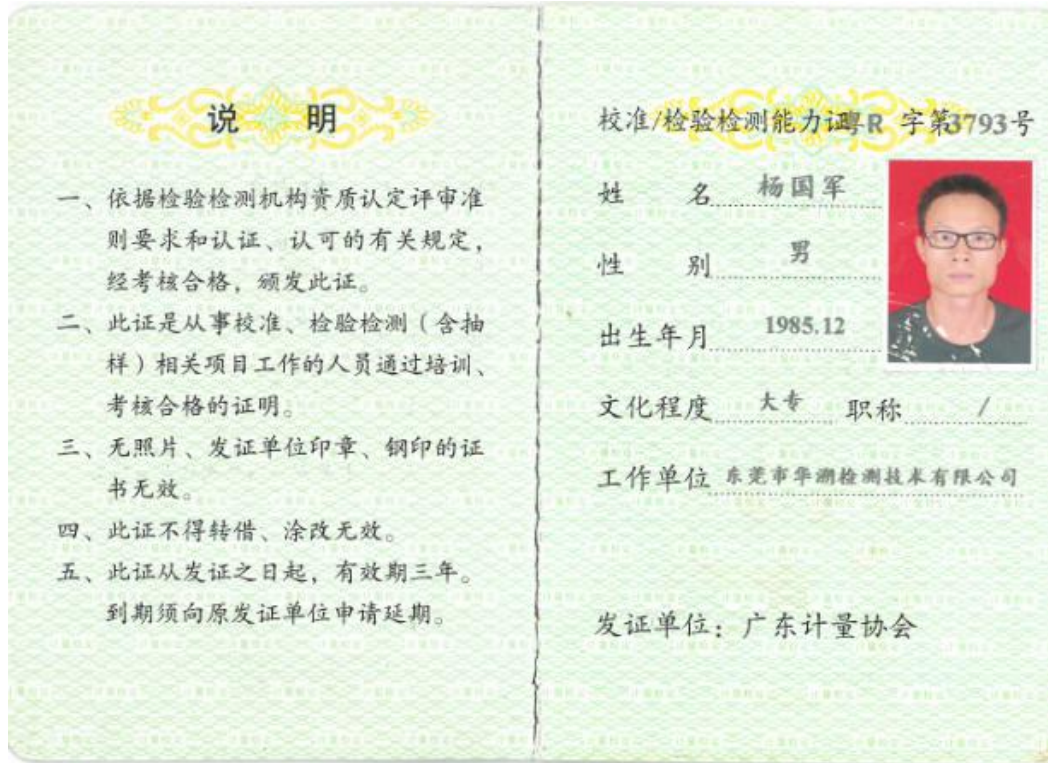 说 明
一、依据检验检测机构资质认定评审准
则要求和认证、认可的有关规定，
经考核合格，颁发此证。
二、此证是从事校准、检验检测（含抽
样）相关项目工作的人员通过培训、
考核合格的证明。
三、无照片、发证单位印章、钢印的证
书无效。
四、此证不得转借、涂改无效。
五、此证从发证之日起，有效期三年。
到期须向原发证单位申请延期。
校准/检验检测能力证粤R 字第3793号
姓 名 杨国军
性 别 男
出生年月 1985.12
文化程度 大专 职称 /
工作单位 东莞市华溯检测技术有限公司
发证单位：广东计量协会